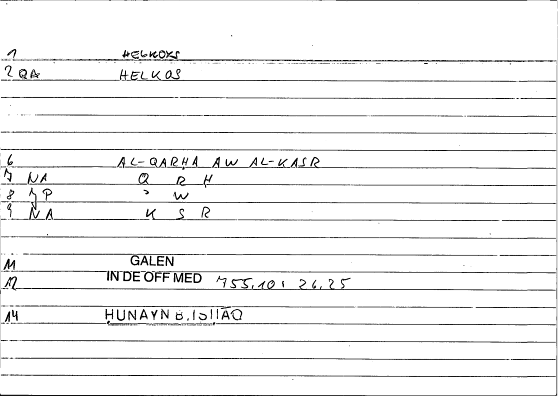 1 HELKOXS
2 QA HELKOS
6 AL-QARḤA AW AL-KASR
7 NA Q R Ḥ
8 JP ʾ W
9 NA K S R
11 GALEN
12 IN DE OFF MED 755,10: 26,25
14 ḤUNAYN B. ISḤĀQ